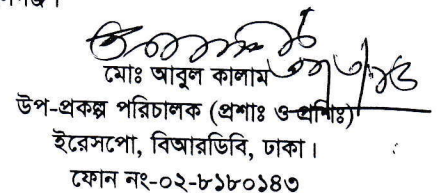 মোঃ আবুল কালাম
উপ-প্রকল্প পরিচালক (প্রশাঃ ও প্রশিঃ)
ইরেসপো, বিআরডিবি, ঢাকা।
ফোন নং-০২-৮১৮০১৪৩